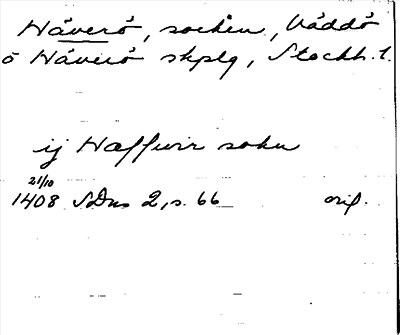 Häverö, socken, Väddö
o Häverö skplg, Stockh. l.
ij Haffwir sokn
21/10
1408 SDns 2, s. 66 orig.